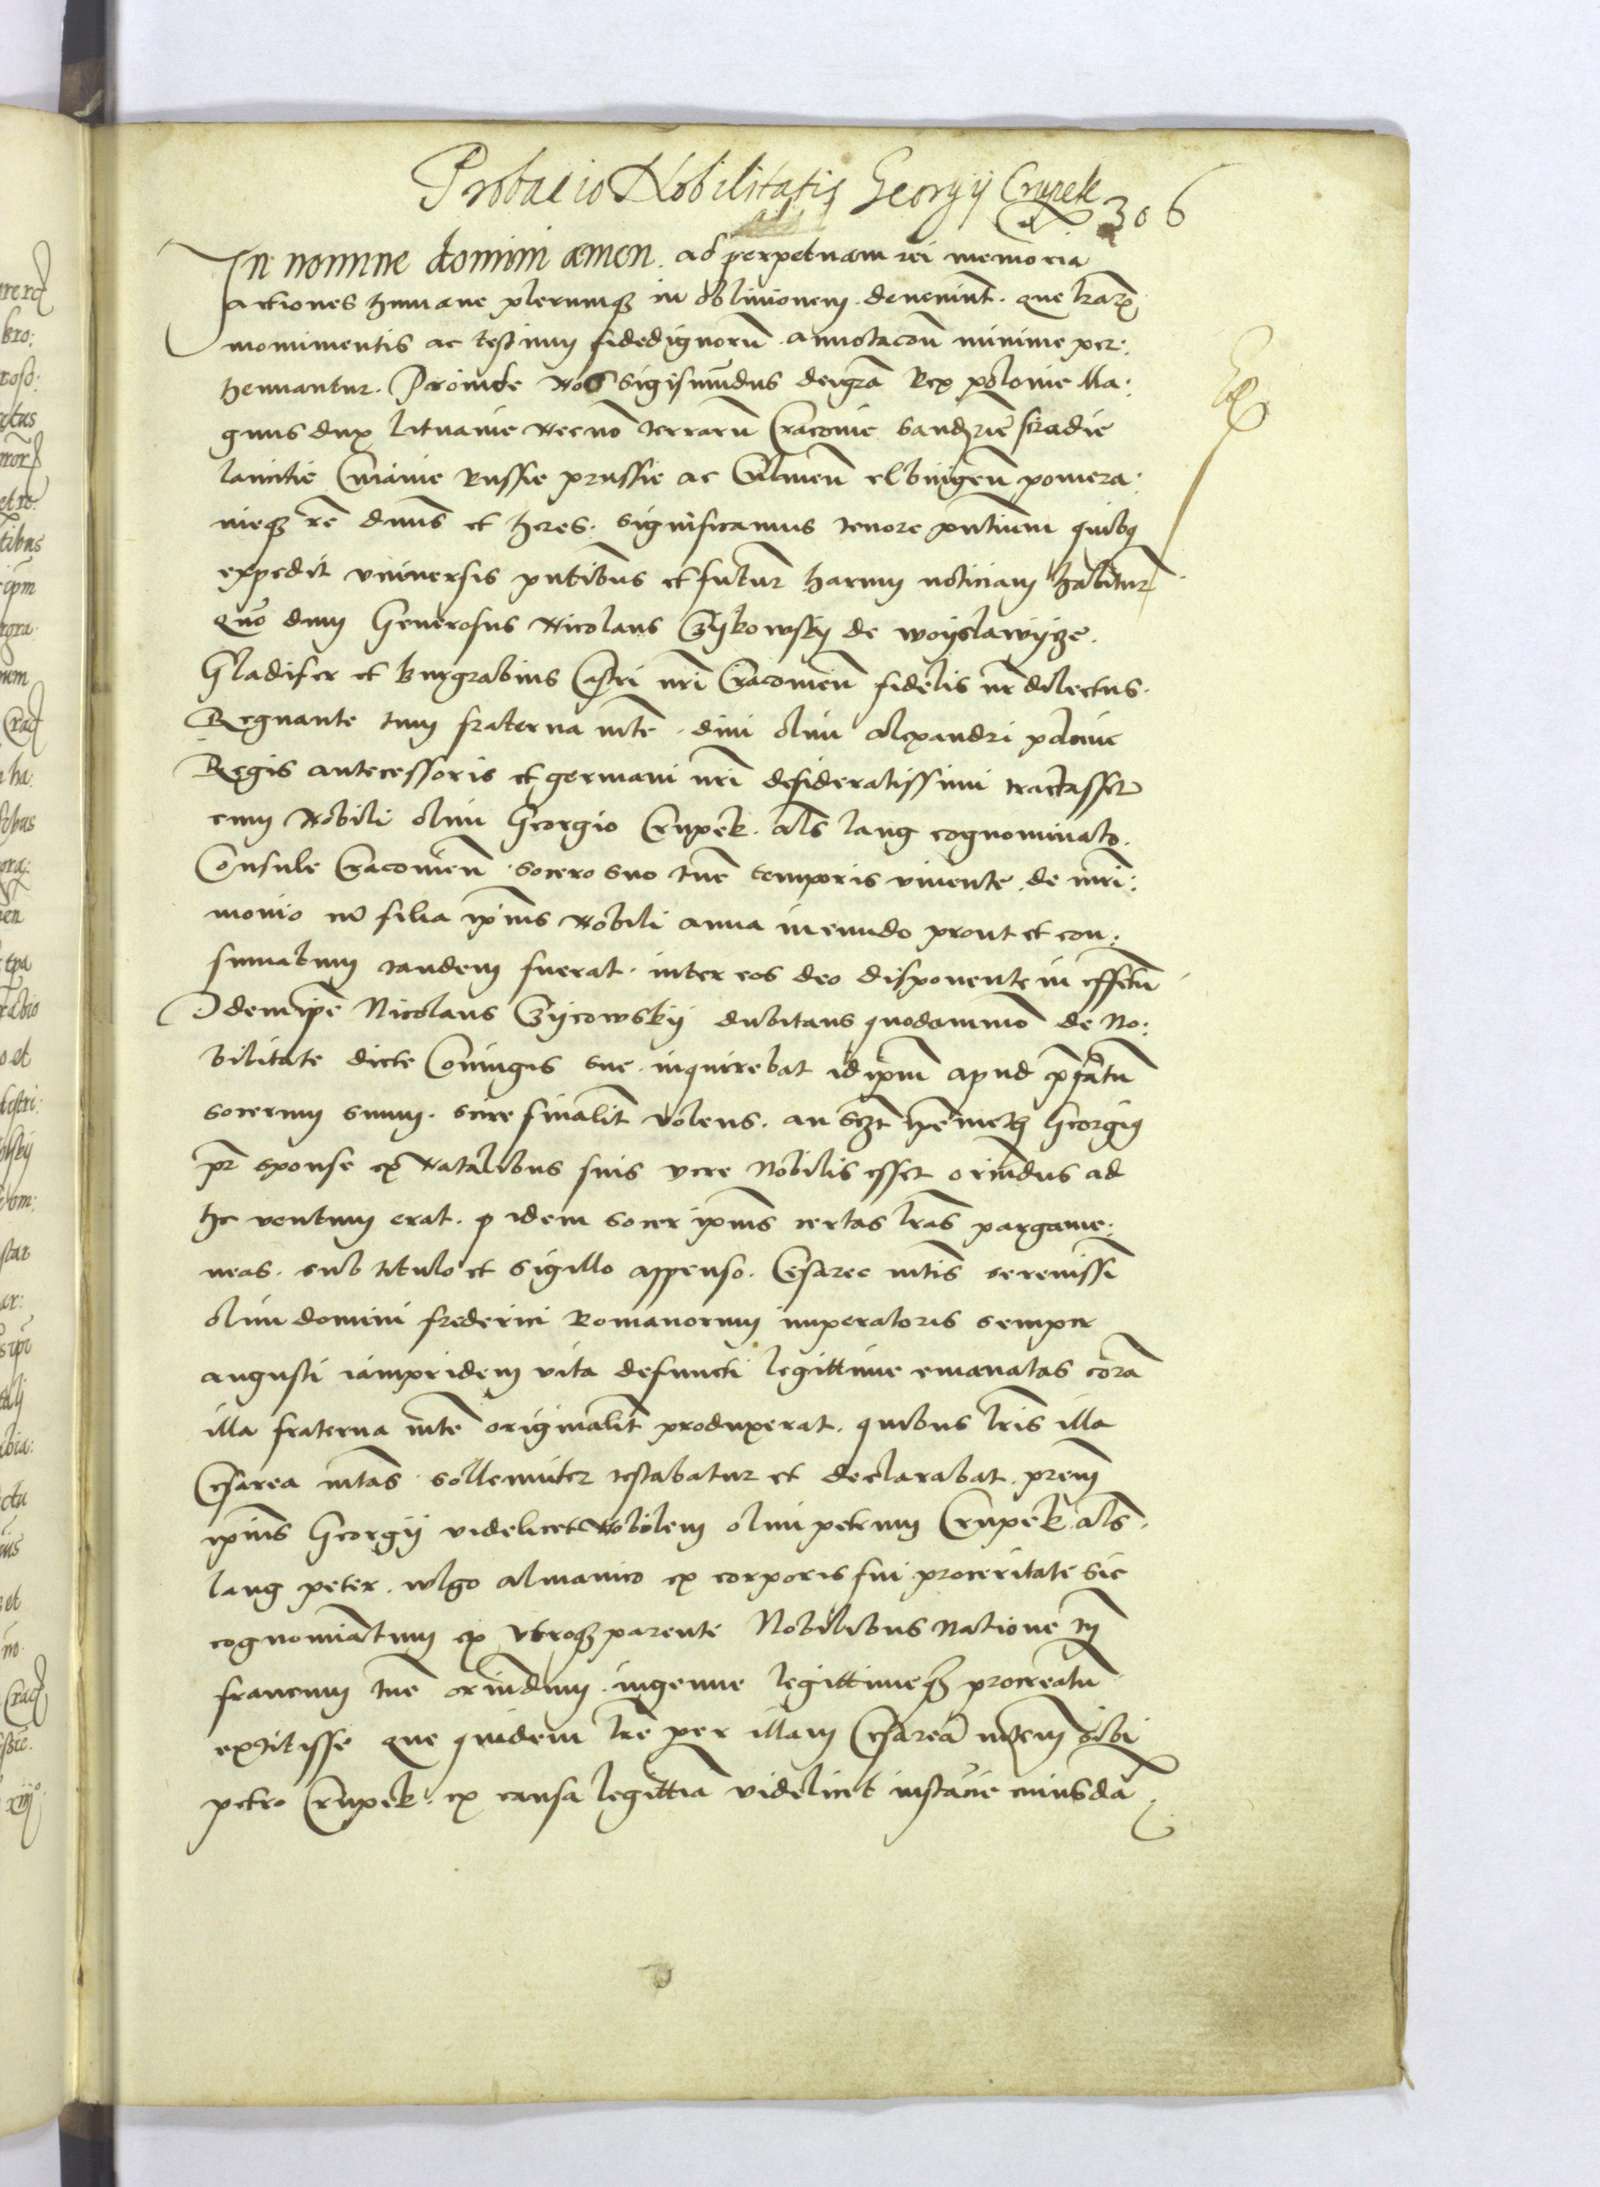 Probacio Nobilitatis Georgij Crupek
306
In nomine domini amen. ad perpetuam rei memoria
actiones humane plerumq; in oblivionem deveniunt. que lrarz
monimentis ac testium fidedignorũ annotacoñ minime per:
hennantur. Proinde Nos Sigismũdus dei grã Rex polonie Ma:
gnus dux Lituanie Necnõ terrarũ Cracovie Sandrie Siradie
lancitie Cuiavie Russie prussie ac Culmeñ elbingeñ pomera:
nieq; rẽ dnũs et heres. significamus tenore pñtium quibq
expedit vniversis pñtibus et futur harum noticiam habitur
Quo dum Generosus Nicolaus Czijkowskij de woijslawijze.
Gladifer et Burgrabius Castri nri Cracovieñ fidelis nr dilectus.
Regnante tum fraterna mte. divi olim alexandri polonie
Regis antecessoris et germani nri desideratissimi tractasset
cum Nobili olim Georgio Crupek. als lang cognominato.
Consule Cracovieñ. socero suo tũc temporis vivente. de mri:
monio cũ filia ipius Nobili anna ineundo prout et con:
sumatum tandem fuerat. inter eos deo disponente in effectũ
Idem ipe Nicolaus Czijcowskij dubitans quodammõ de No:
bilitate dicte Coniugis sue. inquirebat id ipm apud prefatũ
socerum suum. scire finalit volens. an sczt ipemet Georgig
pr sponse ex Natalibus suis vere Nobilis esset oriundus ad
hc ventum erat. q idem socer ipius certas lras pargame:
neas. sub titulo et sigillo appenso. Cesaree mtis serenissi
olim domini frederici Romanorum imperatoris semper
augusti iampridem vita defuncti legittime emanatas corã
illa fraterna mte originalit produxerat. quibus lris illa
Cesarea mtas sollemniter testabatur et declarabat. prem
ipius Georgij videlicet Nobilem olim petrum Crupek. als.
lang peter. wlgo almanico ex corporis sui proceritate sic
cognomiatum ex vtroq; parente Nobilibus Natione
francum tũc oriundum. ingenue legittimeq; procreatũ
extitisse que quidem lre per illam Cesareã mtem sibi
petro Crupek. ex causa legittia videlicet instãcie cuiusdã